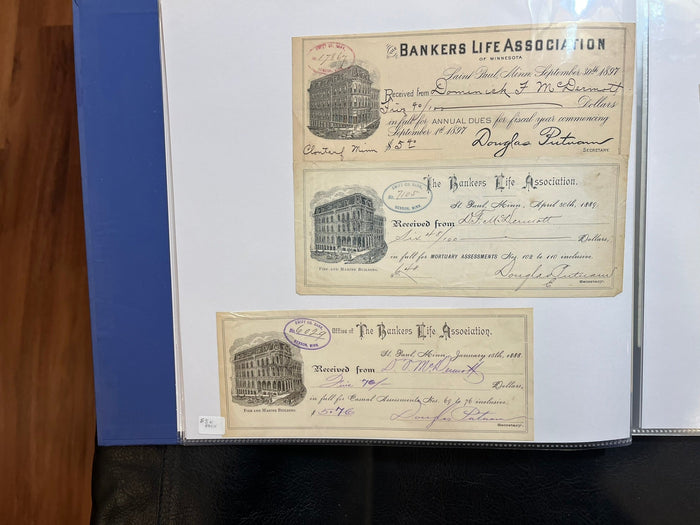 SWIFT CO. BANK
No. 17867
BENSON, MINN.
The BANKERS LIFE ASSOCIATION
OF MINNESOTA
Saint Paul, Minn. September 30th 1897
Received from Dominick F McDermott
Dollars
in full for ANNUAL DUES for fiscal year commencing
September 1st 1897
$5
Douglas Putnam
SECRETARY.
Minn
SWIFT CO. BANK
No. 7105
BENSON, MINN.
The Bankers Life Association.
St. Paul, Minn., April 30th, 1889.
Received from D. F. McDermott
Six 48/100 Dollars,
in full for MORTUARY ASSESSMENTS Nos. 102 to 110 inclusive.
$6.48
Douglas Putnam
Secretary.
FIRE AND MARINE BUILDING.
SWIFT CO. BANK
No. 4024
BENSON, MINN.
Office of The Bankers Life Association.
St. Paul, Minn., January 18th, 1888.
Received from D. F. McDermott
Five 76/ Dollars,
in full for Casual Assessments, Nos. 69 to 76 inclusive.
$5.76
Douglas Putnam
Secretary.
FIRE AND MARINE BUILDING.
EACH